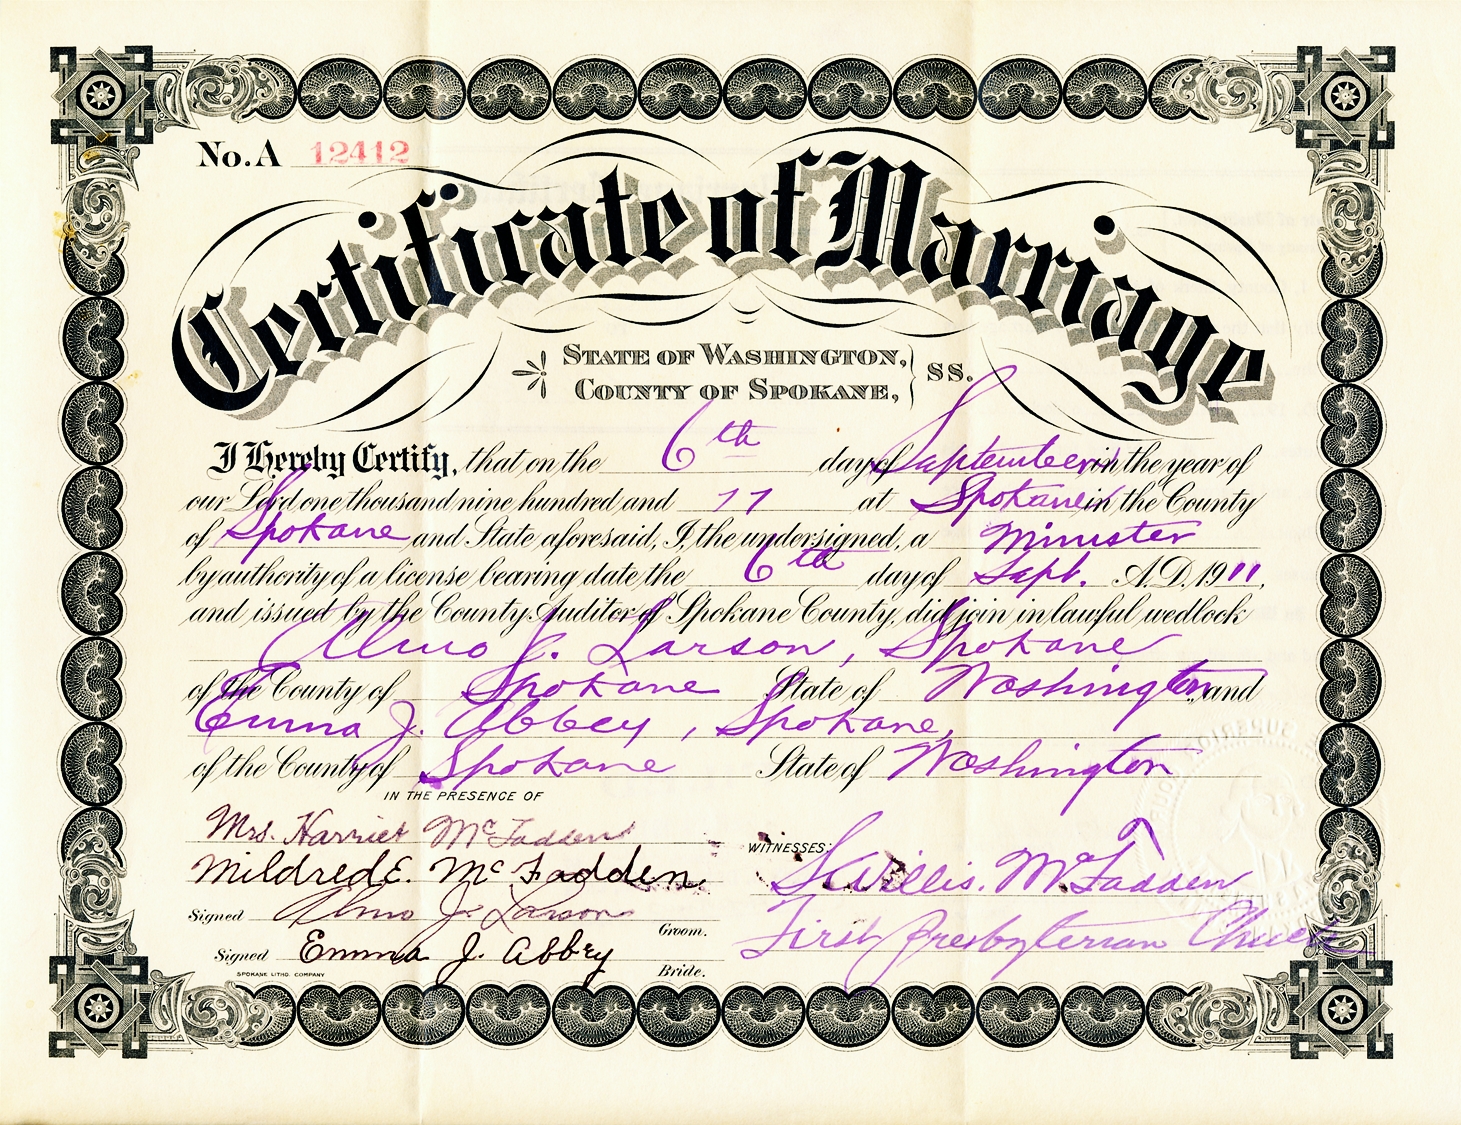 No. A 12412
Certificate of Marriage
STATE OF WASHINGTON,
COUNTY OF SPOKANE, } SS.
I Hereby Certify, that on the 6th day of September in the year of
our Lord one thousand nine hundred and 11 at Spokane in the County
of Spokane and State aforesaid, I, the undersigned, a Minister
by authority of a license bearing date the 6th day of Sept. A.D. 1911,
and issued by the County Auditor of Spokane County, did join in lawful wedlock
Elmo J. Larson, Spokane
of the County of Spokane State of Washington, and
Emma J. Abbey, Spokane,
of the County of Spokane State of Washington
IN THE PRESENCE OF
Mrs. Harriet McFadden
WITNESSES:
Mildred E. McFadden.
S. Willis. McFadden
Signed Elmo J. Larson Groom.
First Presbyterian Church
Signed Emma J. Abbey Bride.
SPOKANE LITHO. COMPANY